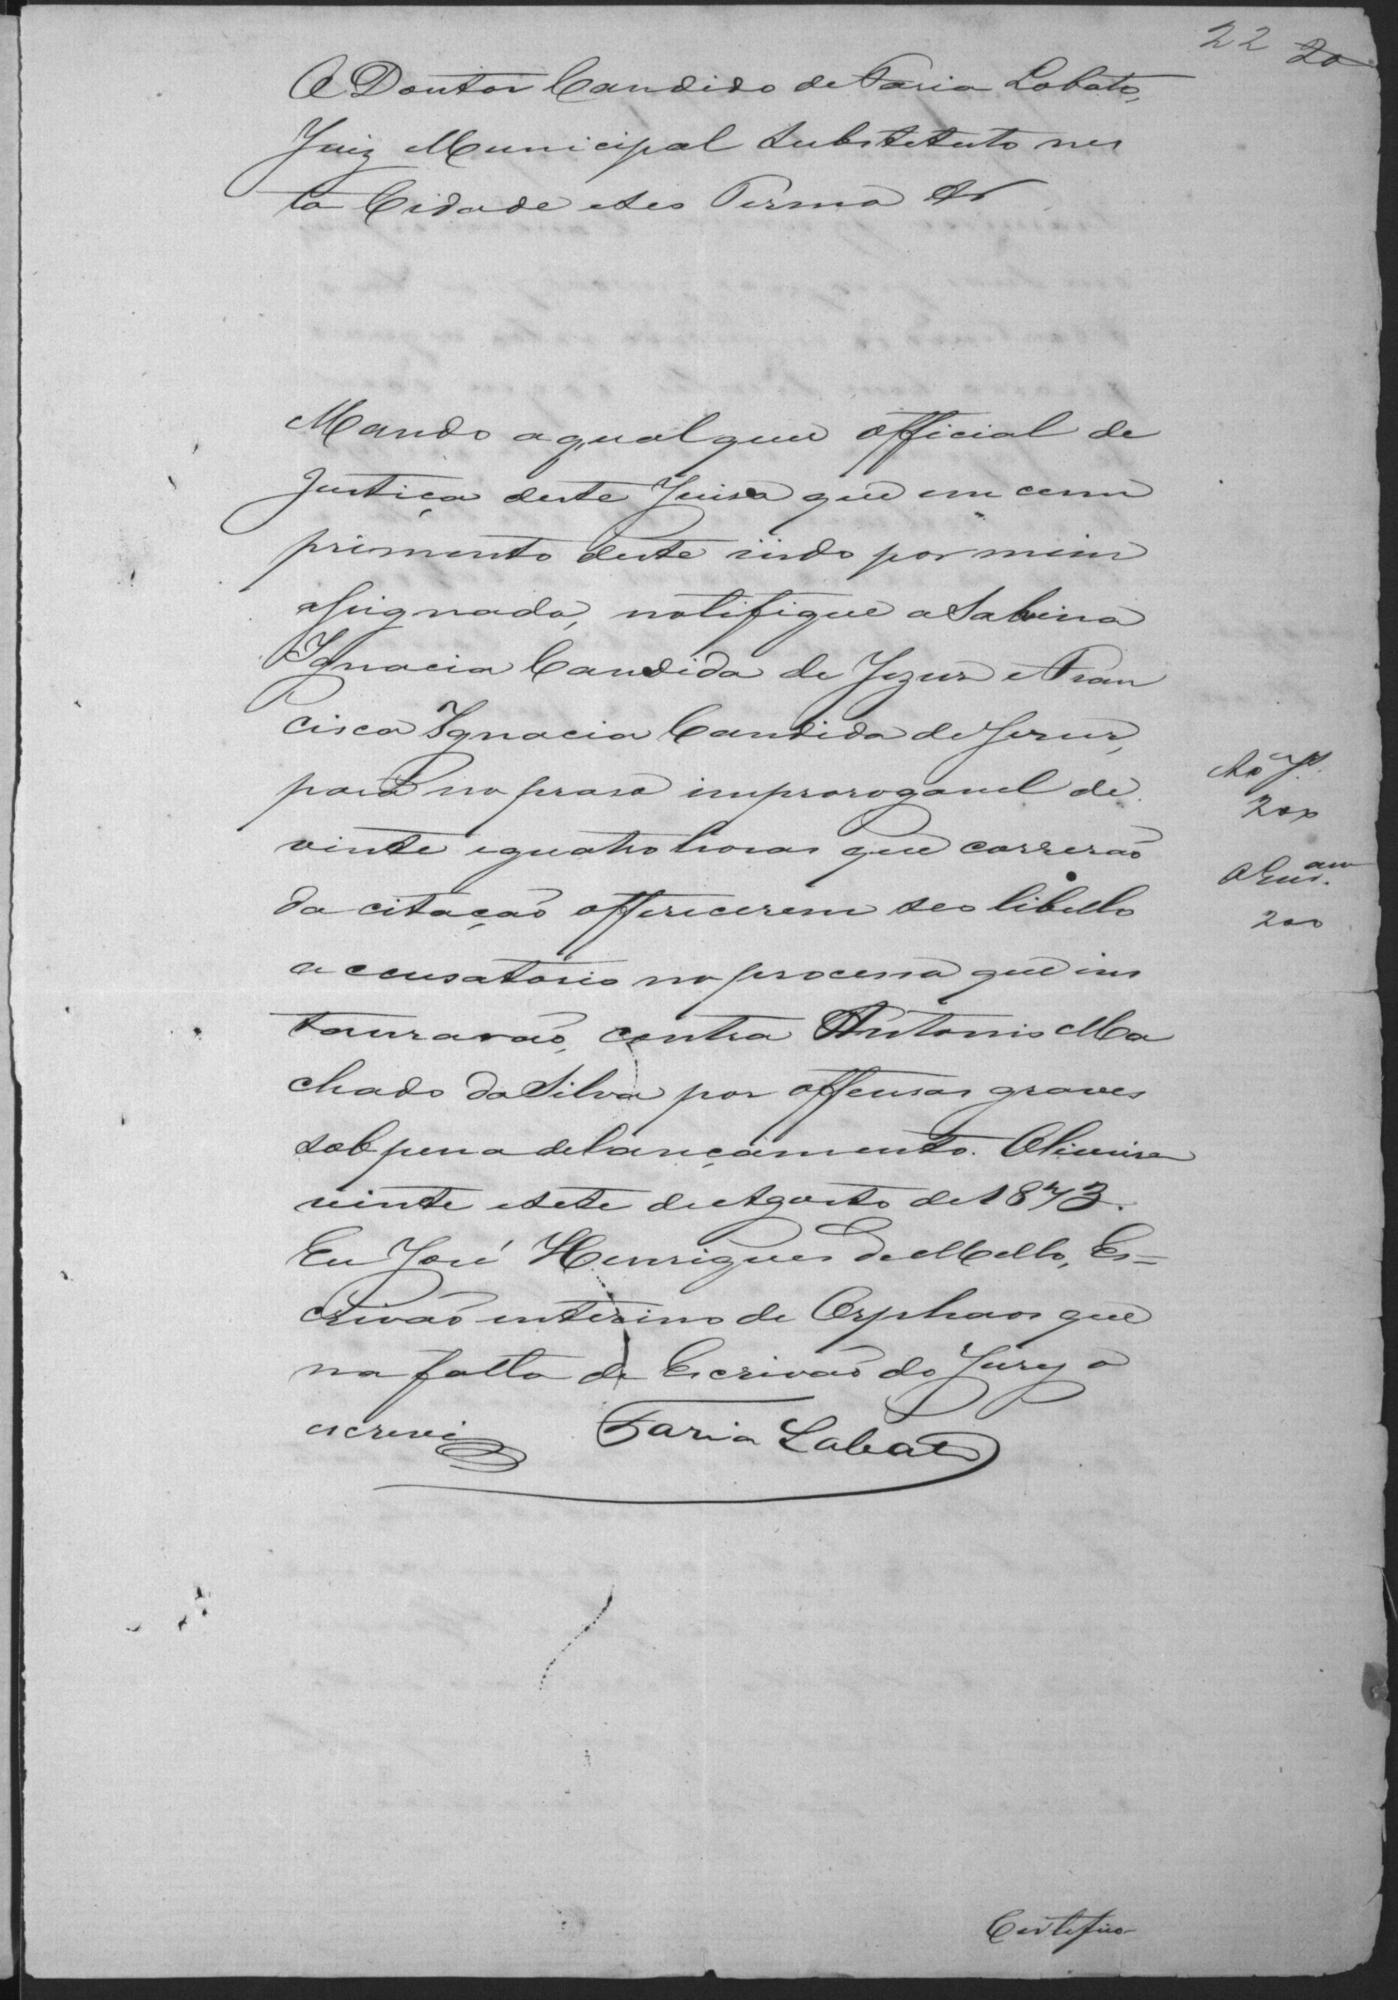 22 20
O Doutor Candido de Faria Lobato,
Juiz Municipal Substituto nes
ta Cidade e seo Termo &
Mando a qual quer official de
Justiça deste Juiso que em cum
primento deste indo por mim
assignado, notifique a Sabina
Ignacia Candida de Jezus e Fran
cisca Ignacia Candida de Jesus,
para no praso improrogavel de
vinte e quatro horas que correrão
da citação offerecerem seo libello
accusatorio no processo que ins
taurarão, contra Antonio Ma
chado da Silva por offensas graves
sob pena de lançamento. Oliveira
vinte e sete de Agosto de 1873.
Eu José Henriques de Mello, Es=
crivão interino de Orphaos que
na falta do Escrivão do Jury o
escrevi Faria Lobato
Ao J.
200
200
Certifico